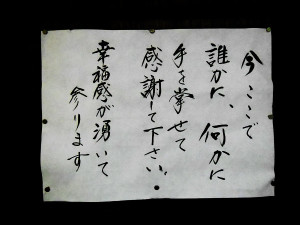 今ここで
誰かに、何かに
手を掌せて
感謝して下さい。
幸福感が湧いて
参ります